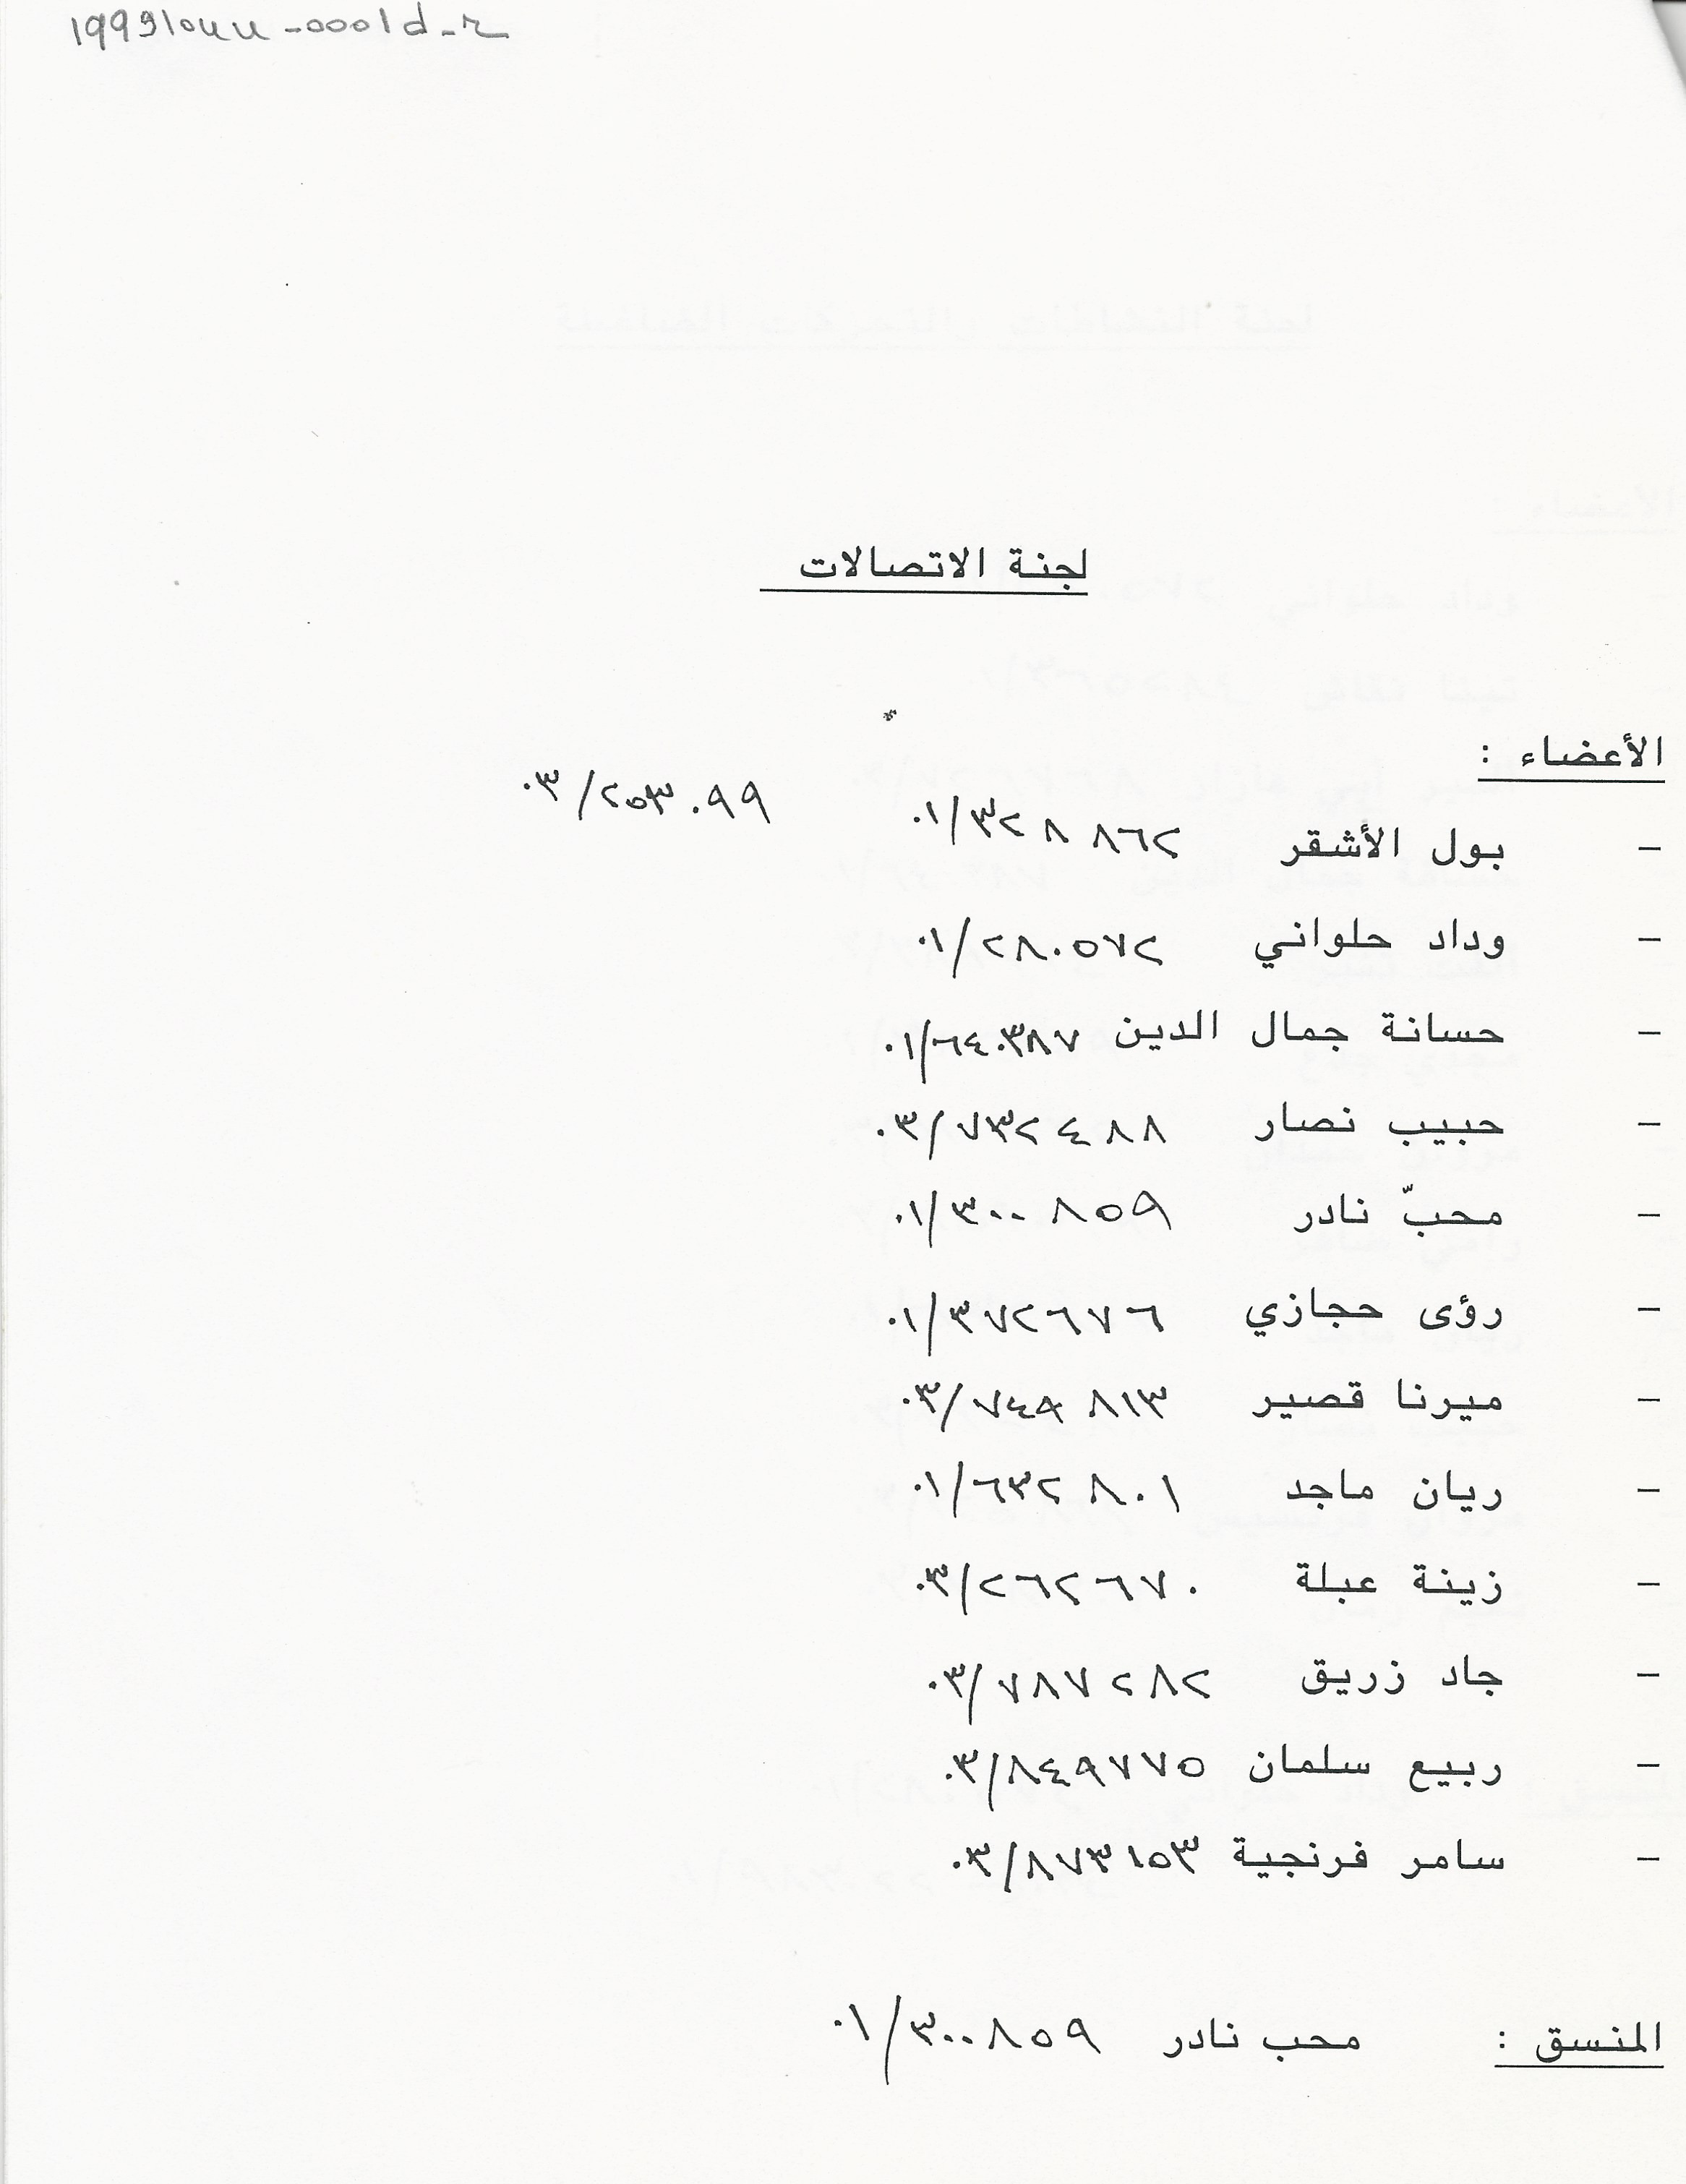 19991ouu-0001d-r
لجنة الاتصالات
الأعضاء :
- بول الأشقر ٠١/٣٢٨ ٨٦٢ ٠٣/٢٥٣٠٩٩
- وداد حلواني ٠١/٢٨٠٥٧٢
- حسانة جمال الدين ٠١/٦٤٠٣٨٧
- حبيب نصار ٠٣/٧٣٢ ٤٨٨
- محبّ نادر ٠١/٣٠٠ ٨٥٩
- رؤى حجازي ٠١/٣٧٢٦٧٦
- ميرنا قصير ٠٣/٧٤٩ ٨١٣
- ريان ماجد ٠١/٦٣٢ ٨٠١
- زينة عبلة ٠٣/٢٦٢٦٧٠
- جاد زريق ٠٣/٧٨٧٢٨٢
- ربيع سلمان ٠٣/٨٤٩٧٧٥
- سامر فرنجية ٠٣/٨٧٣١٥٣
المنسق : محب نادر ٠١/٣٠٠٨٥٩